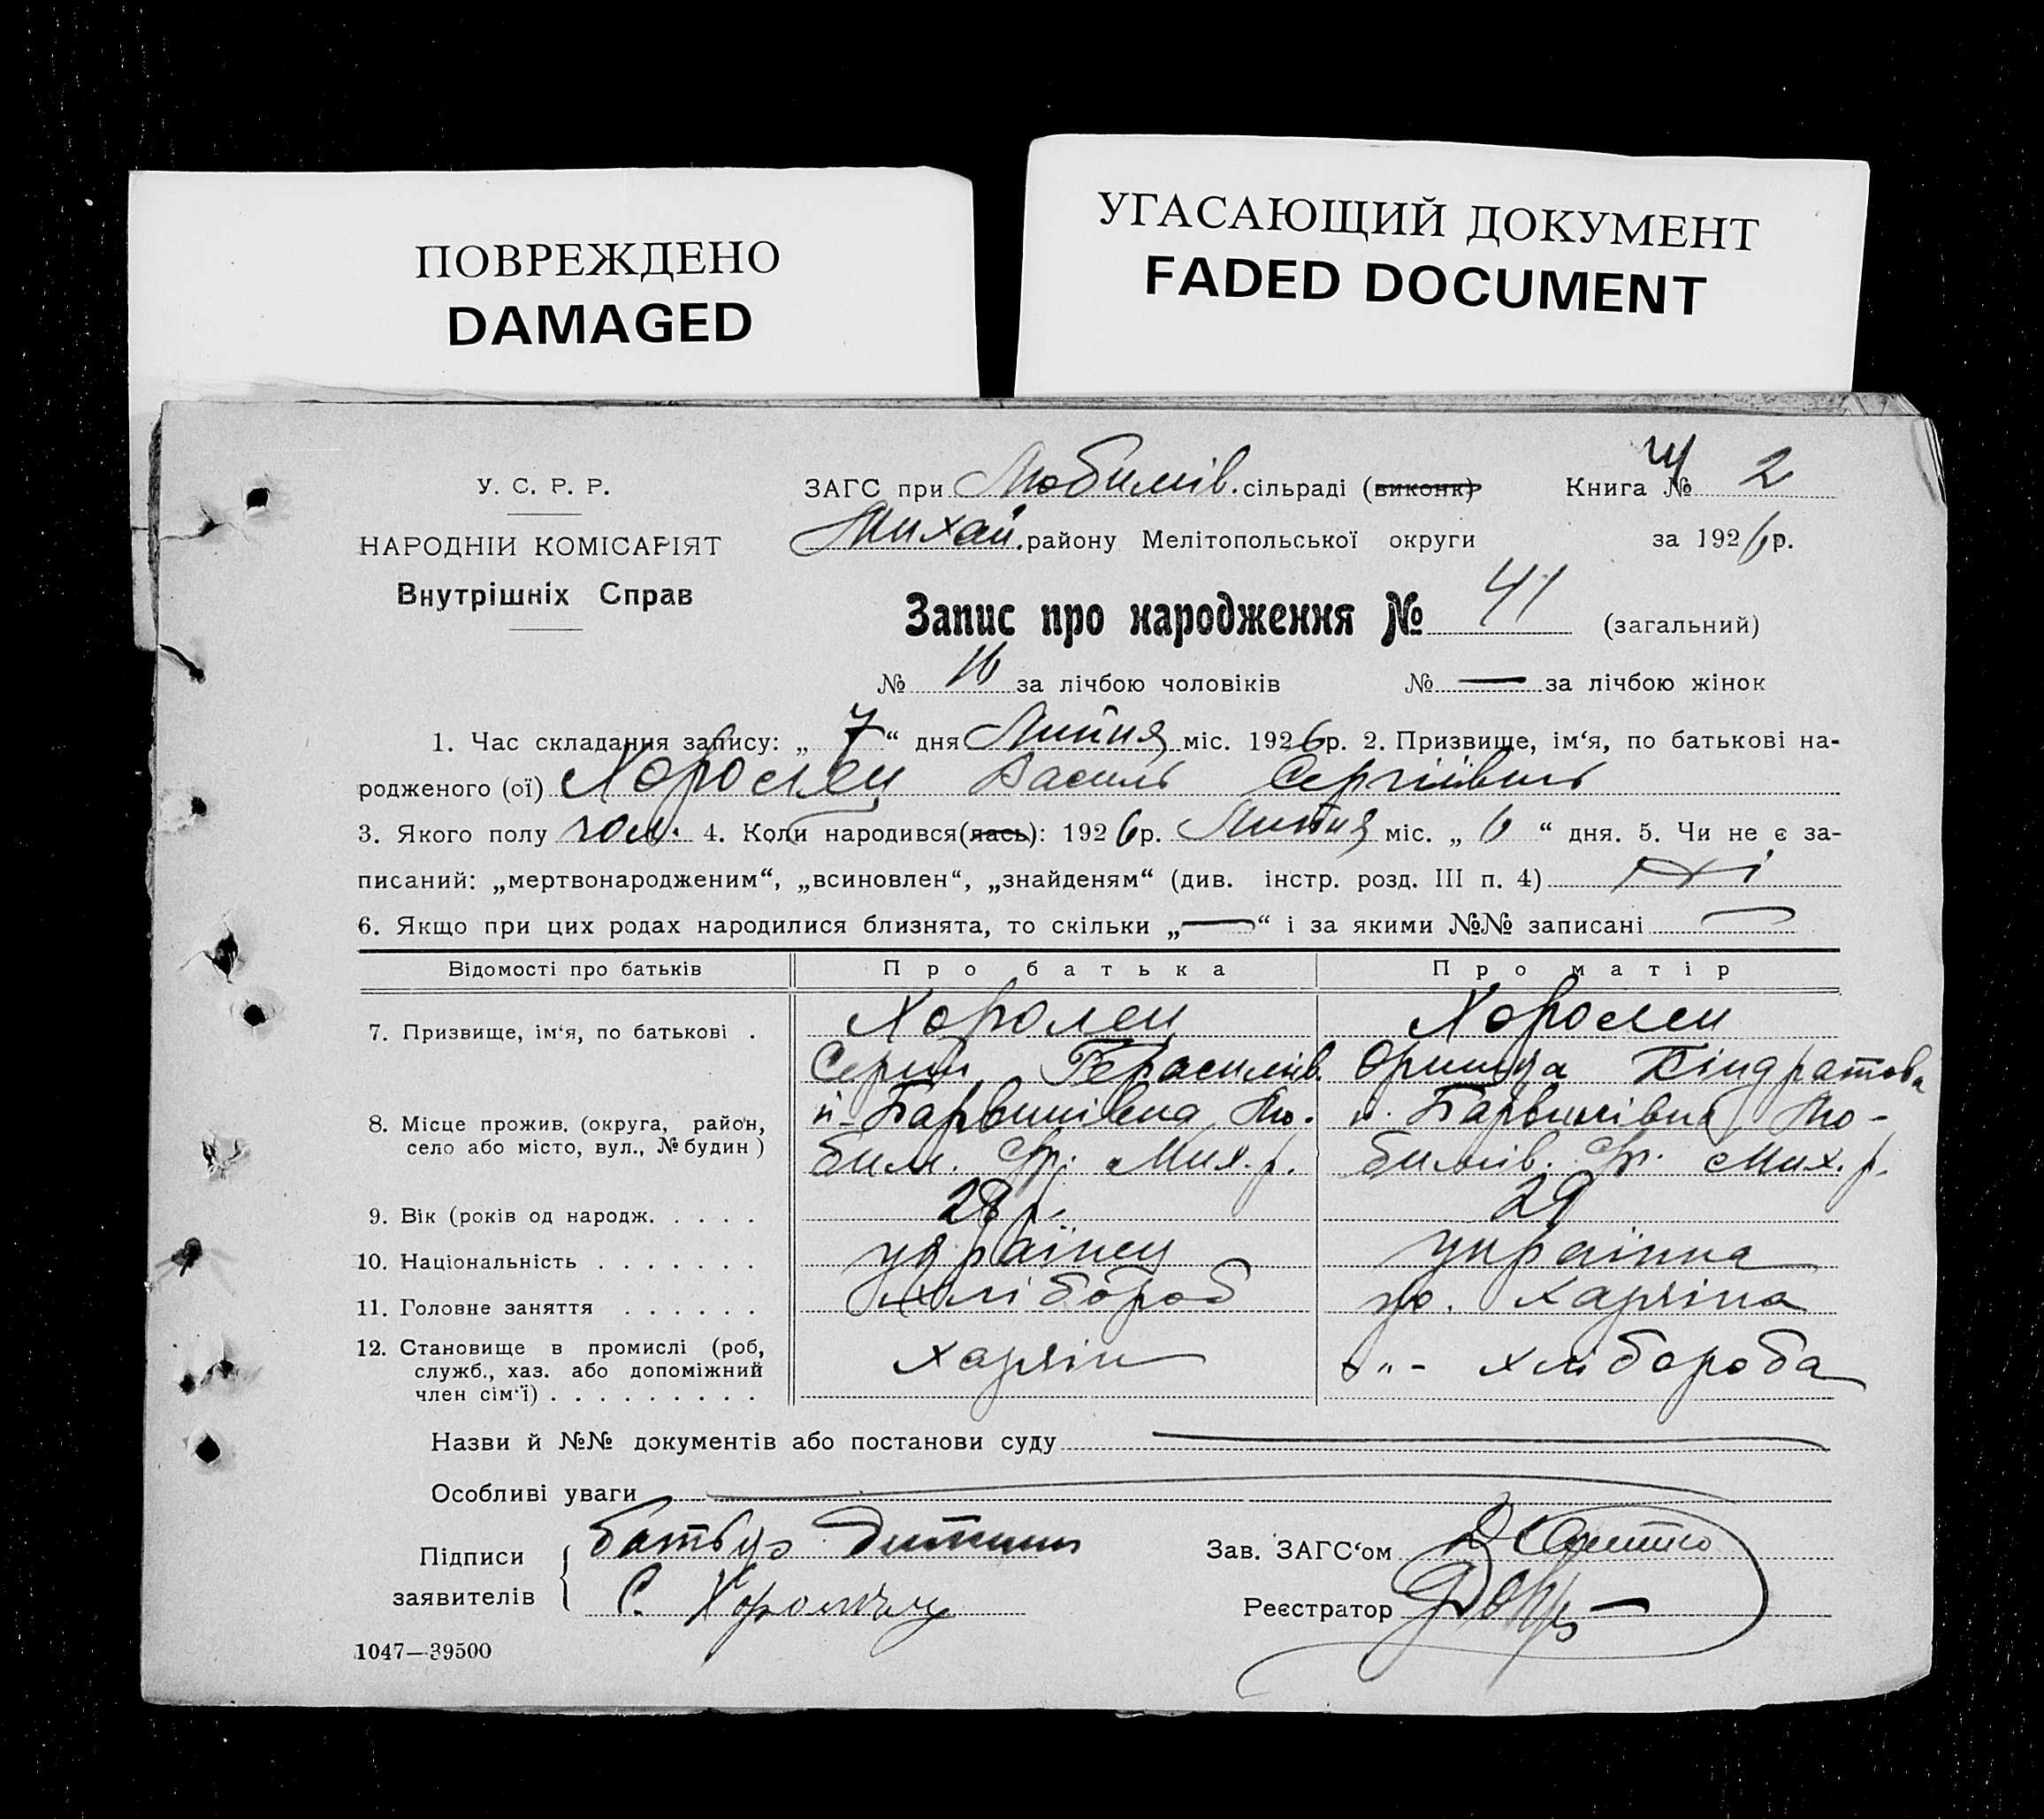 ПОВРЕЖДЕНО
DAMAGED
УГАСАЮЩИЙ ДОКУМЕНТ
FADED DOCUMENT
У. С. Р. Р.
НАРОДНІЙ КОМІСАРІЯТ
Внутрішніх Справ
ЗАГС при Любимів. сільраді (виконк) Книга № 2
Михай. району Мелітопольської округи за 1926 р.
Запис про народження № 41 (загальний)
№ 16 за лічбою чоловіків № — за лічбою жінок
1. Час складання запису: „ 7 “ дня Липня міс. 1926 р. 2. Призвище, ім‘я, по батькові на-
родженого (ої) Хоролец Василь Сергіївич
3. Якого полу чол. 4. Коли народився(лась): 1926 р. Липня міс. „ 6 “ дня. 5. Чи не є за-
писаний: „мертвонародженим“, „всиновлен“, „знайденям“ (див. інстр. розд. III п. 4) Ні
6. Якщо при цих родах народилися близнята, то скільки „—“ і за якими №№ записані —
Відомості про батьків Про батька Про матір
7. Призвище, ім‘я, по батькові . Хоролец Хоролец
Сергій Герасимів. Оришка Кіндратова
8. Місце прожив. (округа, район, село або місто, вул., № будин) Барвинівка Лю- Барвинівка Лю-
бим. с/р. Мих. р. бимів. с/р. Мих. р.
9. Вік (років од народж. . . . . 28 р. 29
10. Національність . . . . . . . українец українка
11. Головне заняття . . . . . . хлібороб хазяїна
12. Становище в промислі (роб, служб., хаз. або допоміжний член сім‘ї) . . . . . . . . . хазяїн -"- хлібороба
Назви й №№ документів або постанови суду —
Особливі уваги —
Підписи заявителів батько дитини
С. Хоролец
Зав. ЗАГС‘ом
Реєстратор
1047—39500